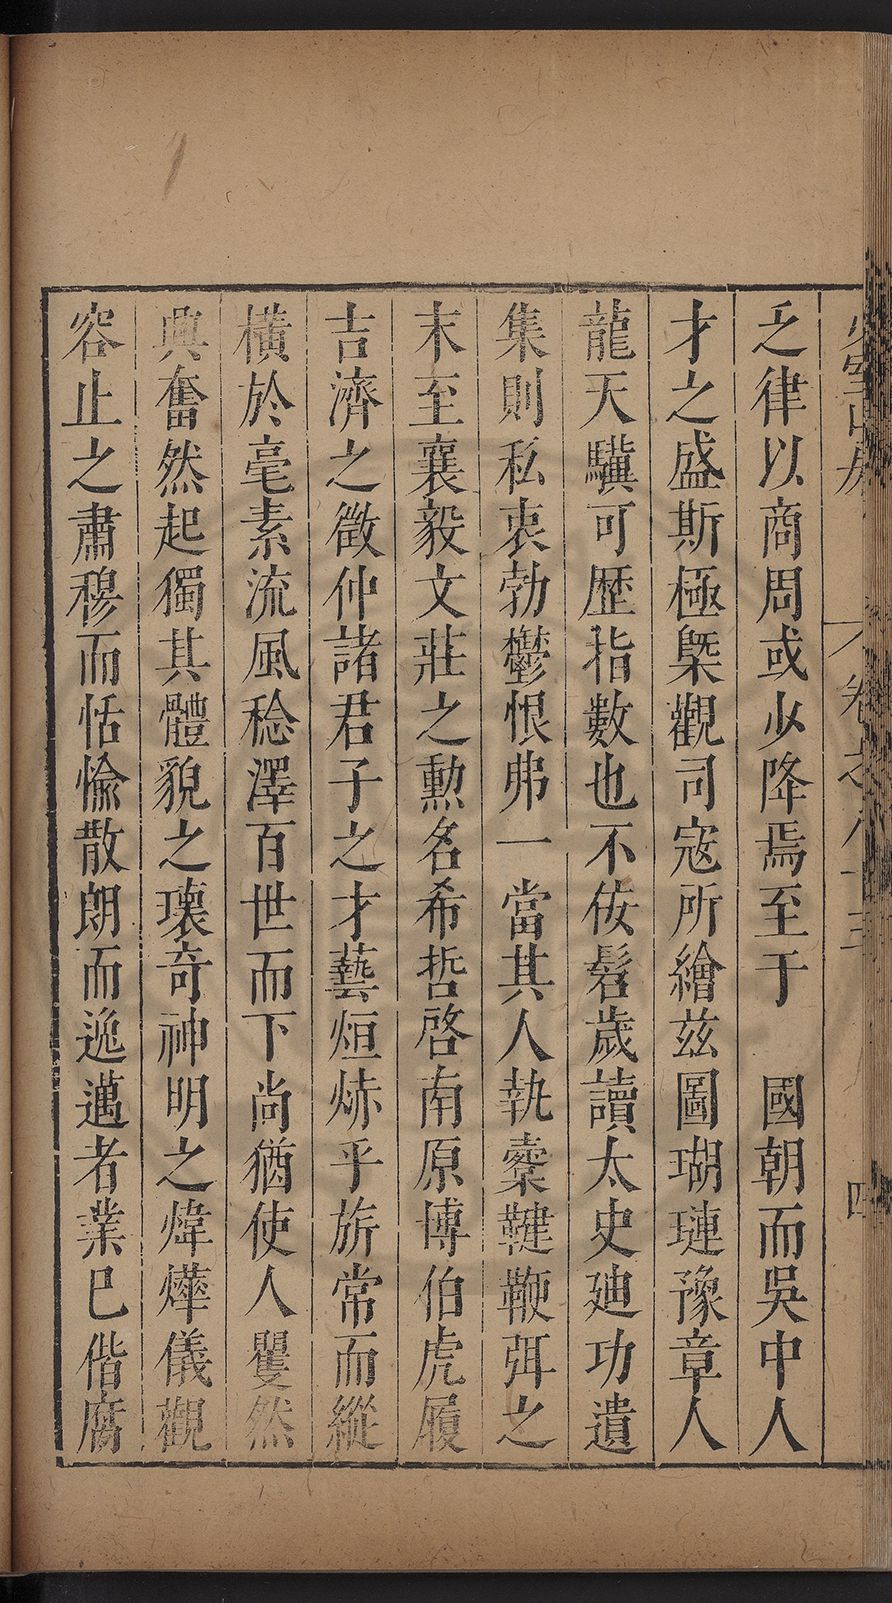 乏律以商周或少降焉至于　國朝而吳中人
才之盛斯極槩觀司寇所繪茲圖瑚璉豫章人
龍天驥可歷指數也不佞髫歲讀太史廸功遺
集則私衷勃鬱恨弗一當其人執櫜鞬鞭弭之
末至襄毅文莊之勲名希哲啓南原博伯虎履
吉濟之徵仲諸君子之才藝烜爀乎旂常而縱
橫於毫素流風稔澤百世而下尚猶使人矍然
興奮然起獨其體貌之瓌奇神明之煒燁儀觀
容止之肅穆而恬愉散朗而逸邁者業巳偕腐